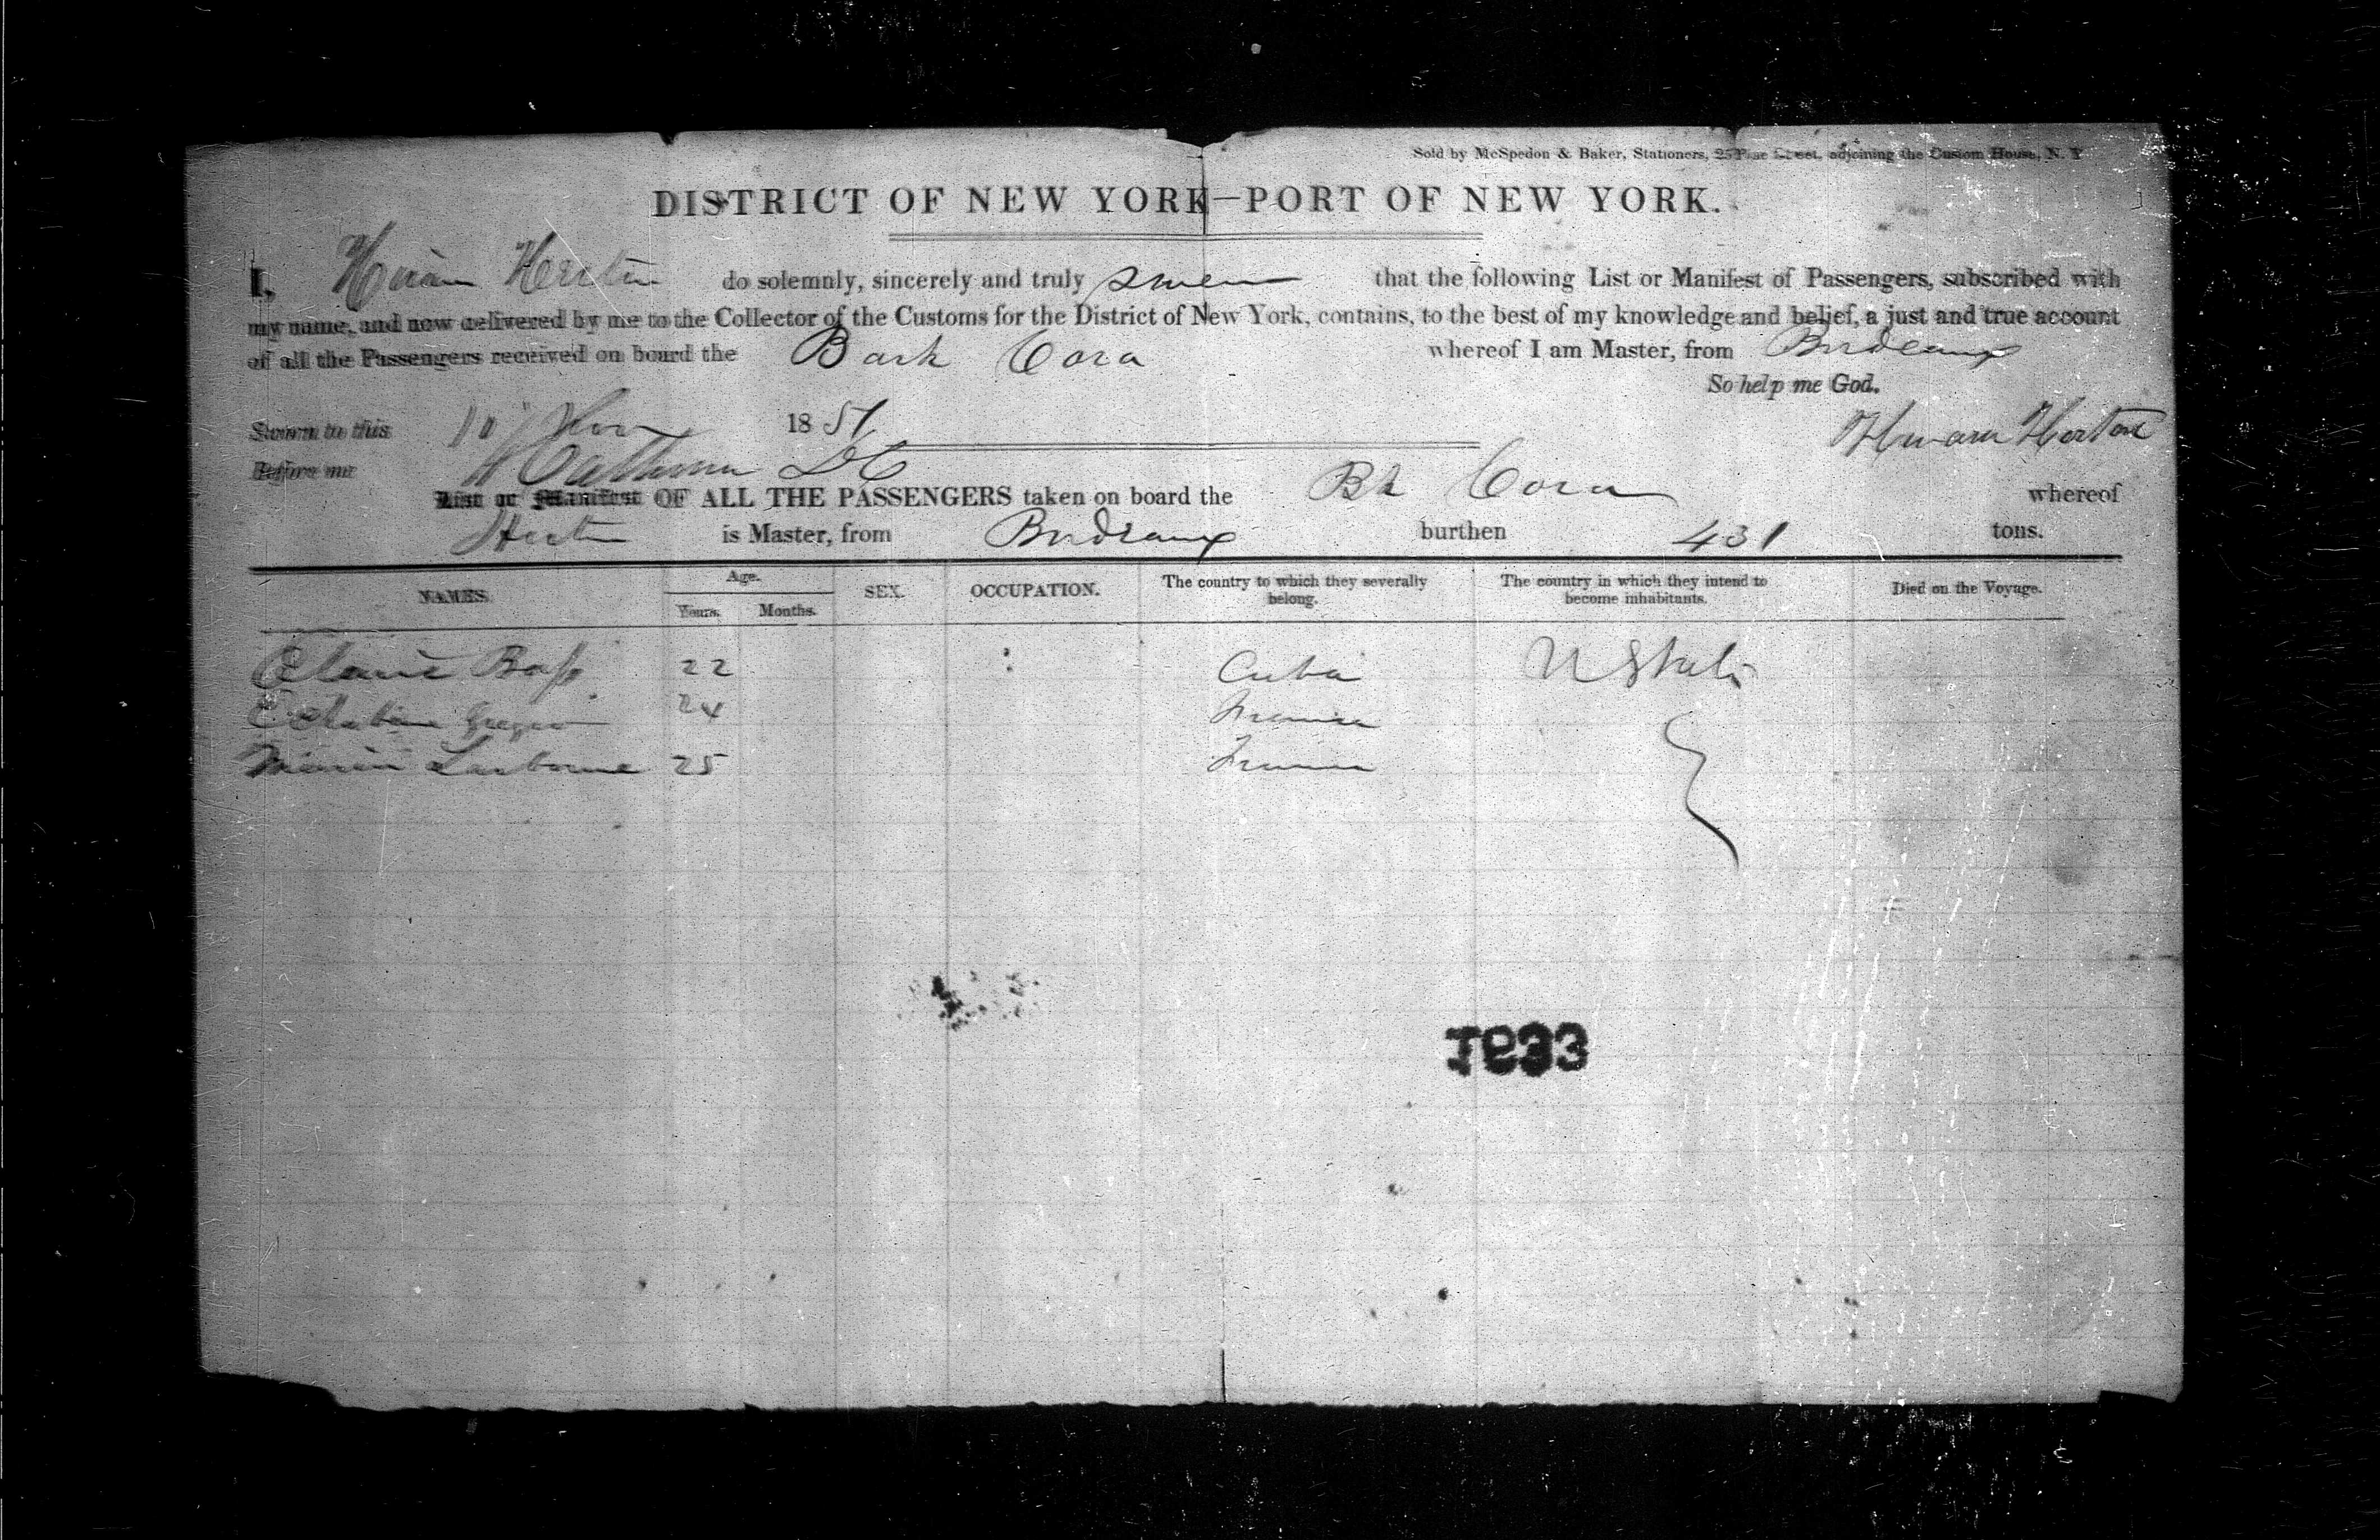 Sold by McSpedon & Baker, Stationers, 25 Pine Street, adjoining the Custom House, N. Y
DISTRICT OF NEW YORK—PORT OF NEW YORK.
I, Hiram Horton do solemnly, sincerely and truly swear that the following List or Manifest of Passengers, subscribed with
my name, and now delivered by me to the Collector of the Customs for the District of New York, contains, to the best of my knowledge and belief, a just and true account
of all the Passengers received on board the Bark Cora whereof I am Master, from Bordeaux
So help me God.
Sworn to this 10 Nov 1851 Hiram Horton
Before me
List or Manifest OF ALL THE PASSENGERS taken on board the Bk Cora whereof
Horton is Master, from Bordeaux burthen 431 tons.
NAMES. Age. SEX. OCCUPATION. The country to which they severally belong. The country in which they intend to become inhabitants. Died on the Voyage.
Years. Months.
22 Cuba U States
24 France
25 France
1633